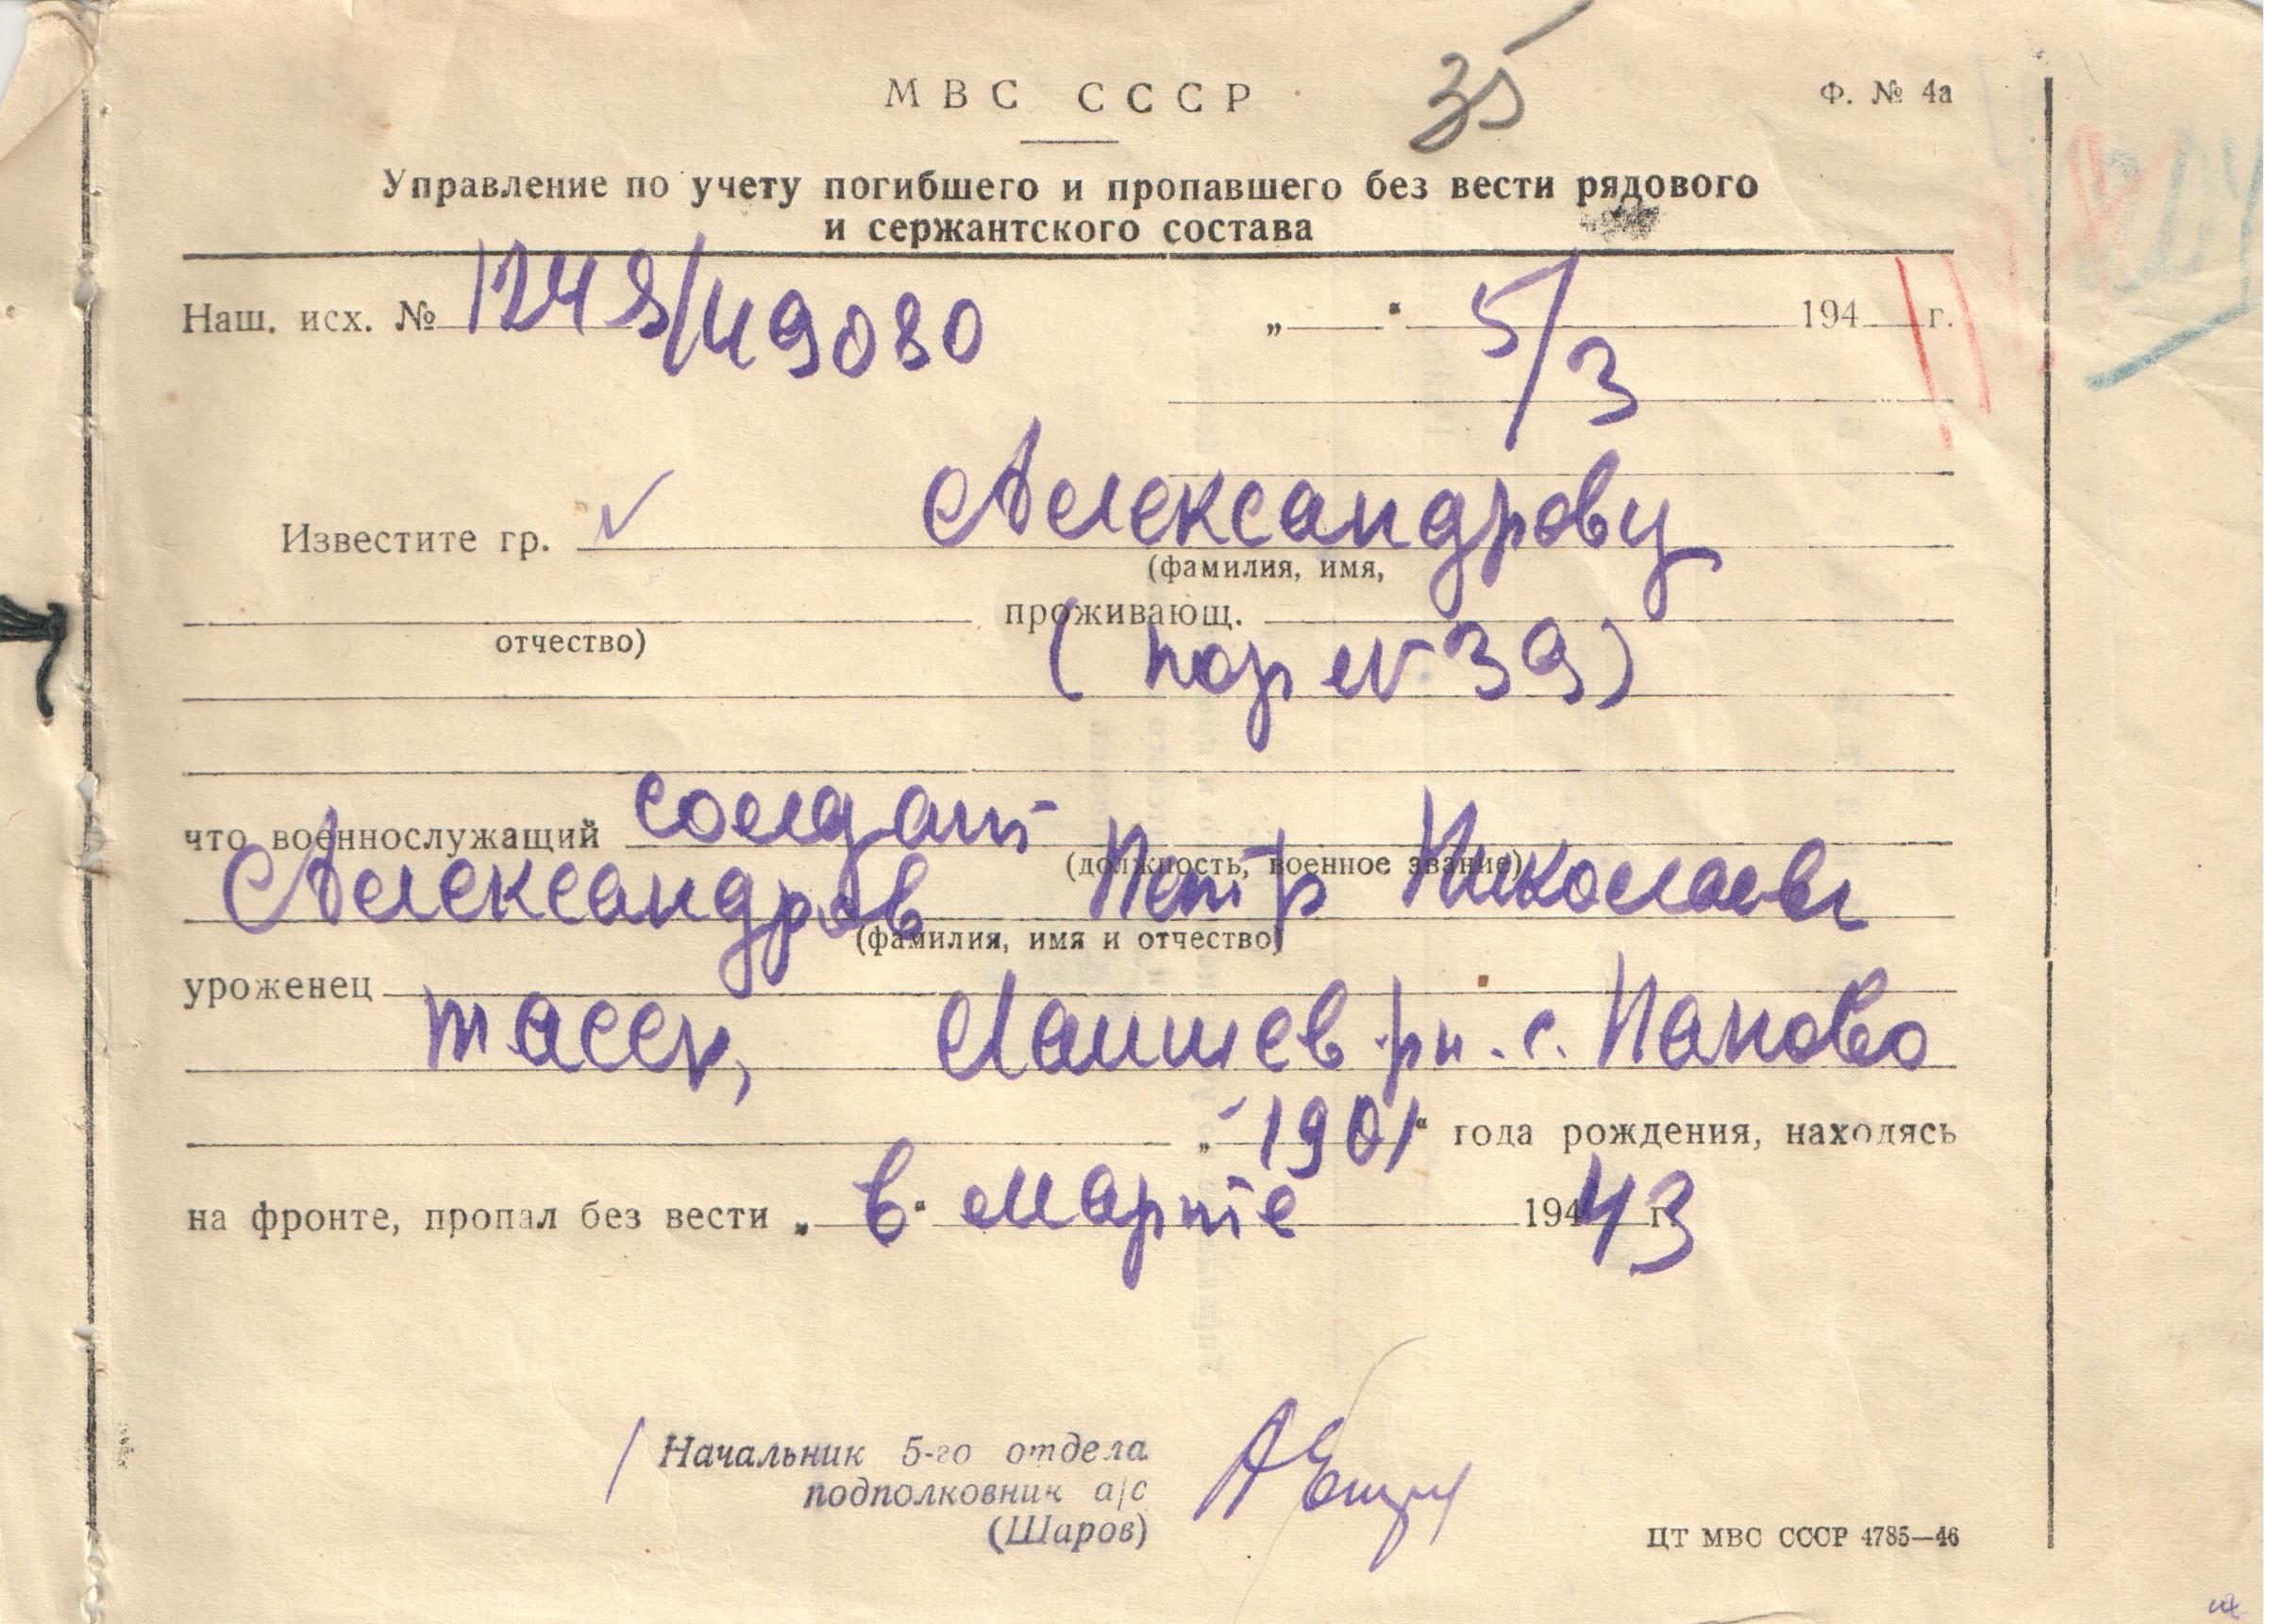 МВС СССР
35
Ф. № 4а
Управление по учету погибшего и пропавшего без вести рядового
и сержантского состава
Наш. исх. № 1248/49080 „ “ 5/3 194 г.
Известите гр. Александрову
(фамилия, имя,
проживающ.
отчество)
(пор № 39)
что военнослужащий солдат
(должность, военное звание)
Александров Петр Николаев
(фамилия, имя и отчество)
уроженец
ТАССР, Лаишев. рн. с. Паново
„ 1901 “ года рождения, находясь
на фронте, пропал без вести „ в “ марте 194 43 г.
Начальник 5-го отдела
подполковник а/с
(Шаров)
ЦТ МВС СССР 4785—46